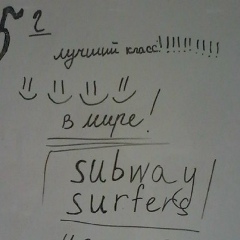 5 г
лучший класс!!!!!!!!!!
в мире!
subway
surfers